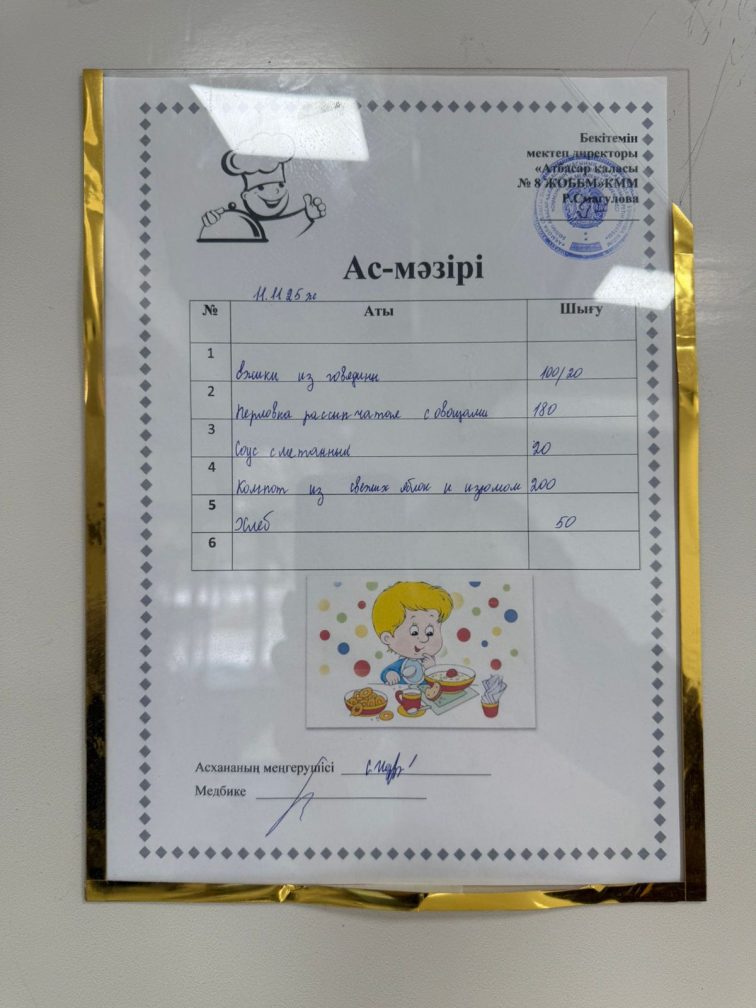 Бекітемін
мектеп директоры
«Атбасар қаласы
№ 8 ЖОББМ»КММ
Р.Смагулова
Ас-мәзірі
11.11 25 ж
№ Аты Шығу
1 ёжики из говядины 100/20
2 Перловка рассыпчатая с овощами 180
3 Соус сметанный 20
4 Компот из свежих яблок и изюмом 200
5 Хлеб 50
6
Асхананың меңгерушісі
Медбике